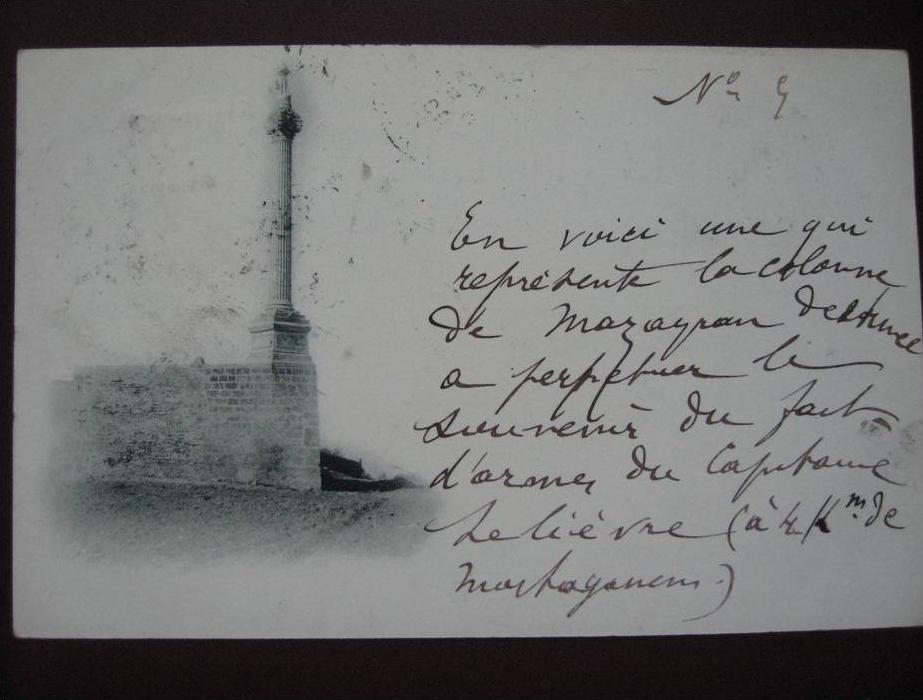 No 9
En voici une qui
représente la colonne
de Mazagran destinée
a perpétuer le
souvenir du fait
d'armes du Capitaine
Lelièvre (à 4 Km. de
Mostaganem.)